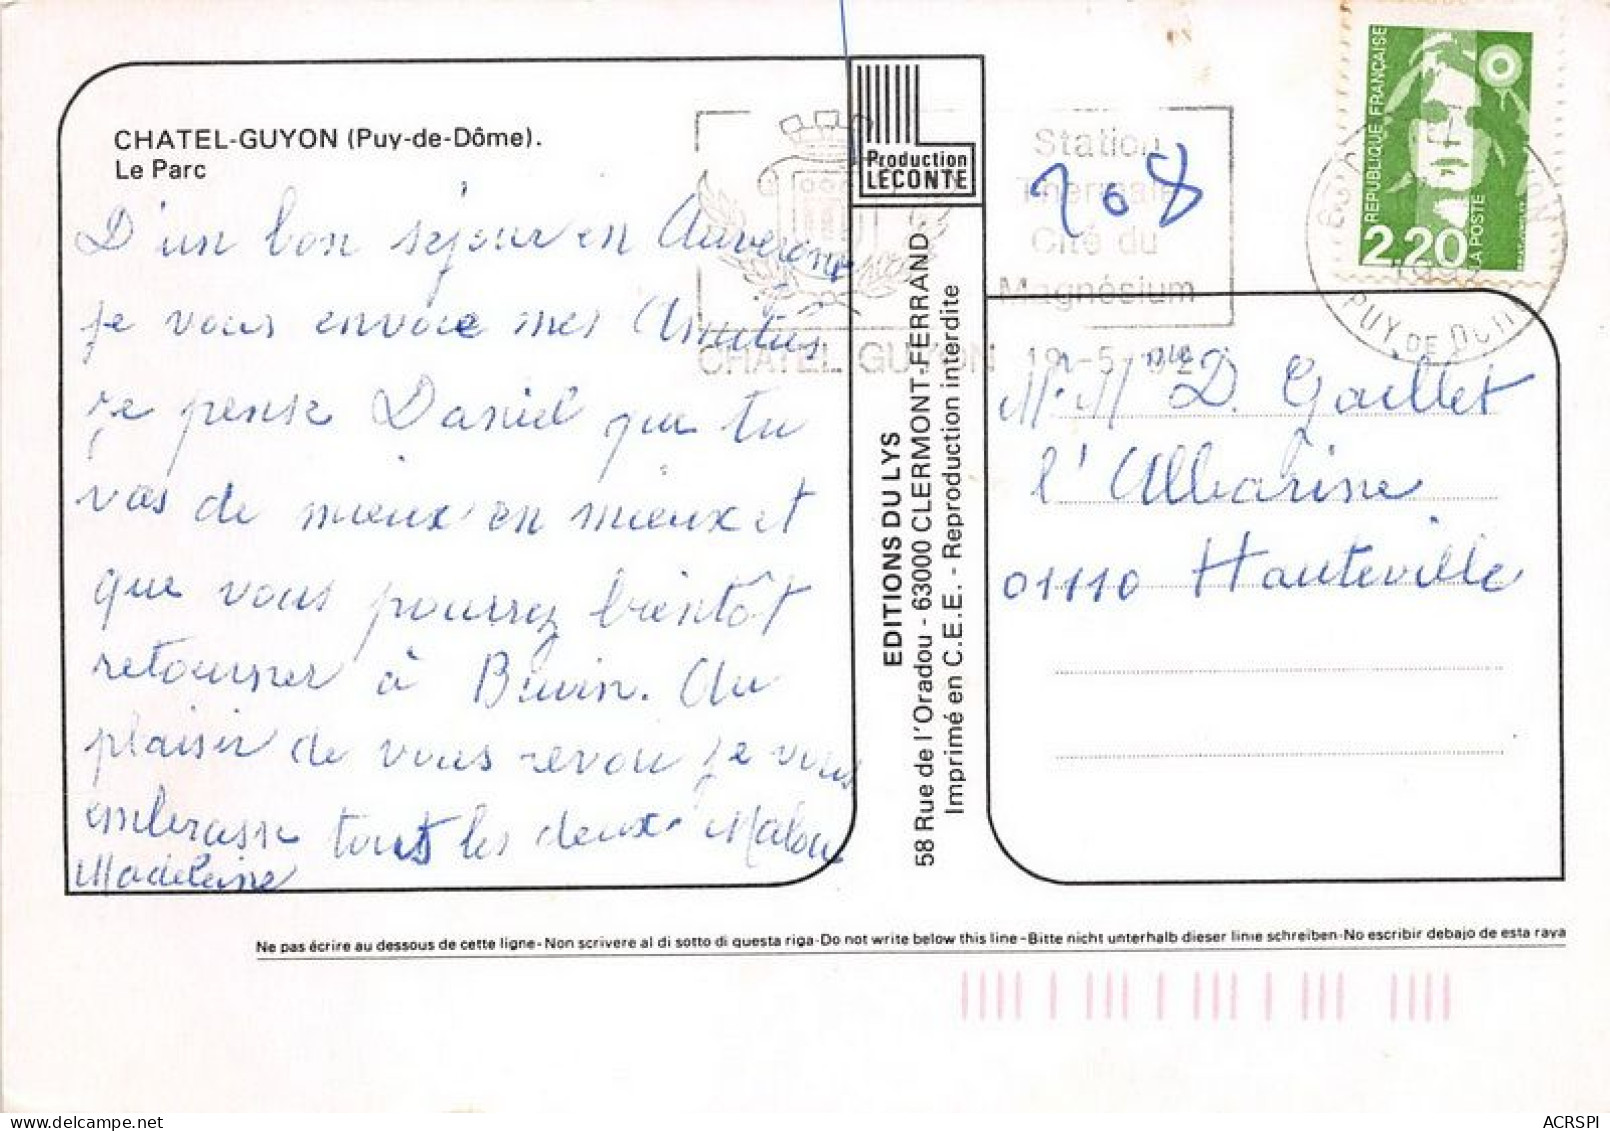 CHATEL-GUYON (Puy-de-Dôme).
Le Parc
D'un bon séjour en Auvergne
je vous envoie mes Amitiés
je pense Daniel que tu
vas de mieux en mieux et
que vous pourrez bientôt
retourner à
Au
plaisir de vous revoir je vous
embrasse tous les deux. Malou
Madeleine
Production
LECONTE
EDITIONS DU LYS
58 Rue de l'Oradou - 63000 CLERMONT-FERRAND.
Imprimé en C.E.E. - Reproduction interdite
Station
Thermale
Cité du
Magnésium
CHATEL GUYON 19-5-
208
REPUBLIQUE FRANÇAISE
2,20
LA POSTE
PUY DE DOME
M. Mme D. Gaillet
l'Albarine
01110 Hauteville
Ne pas écrire au dessous de cette ligne-Non scrivere al di sotto di questa riga-Do not write below this line-Bitte nicht unterhalb dieser linie schreiben-No escribir debajo de esta raya
ACRSPI